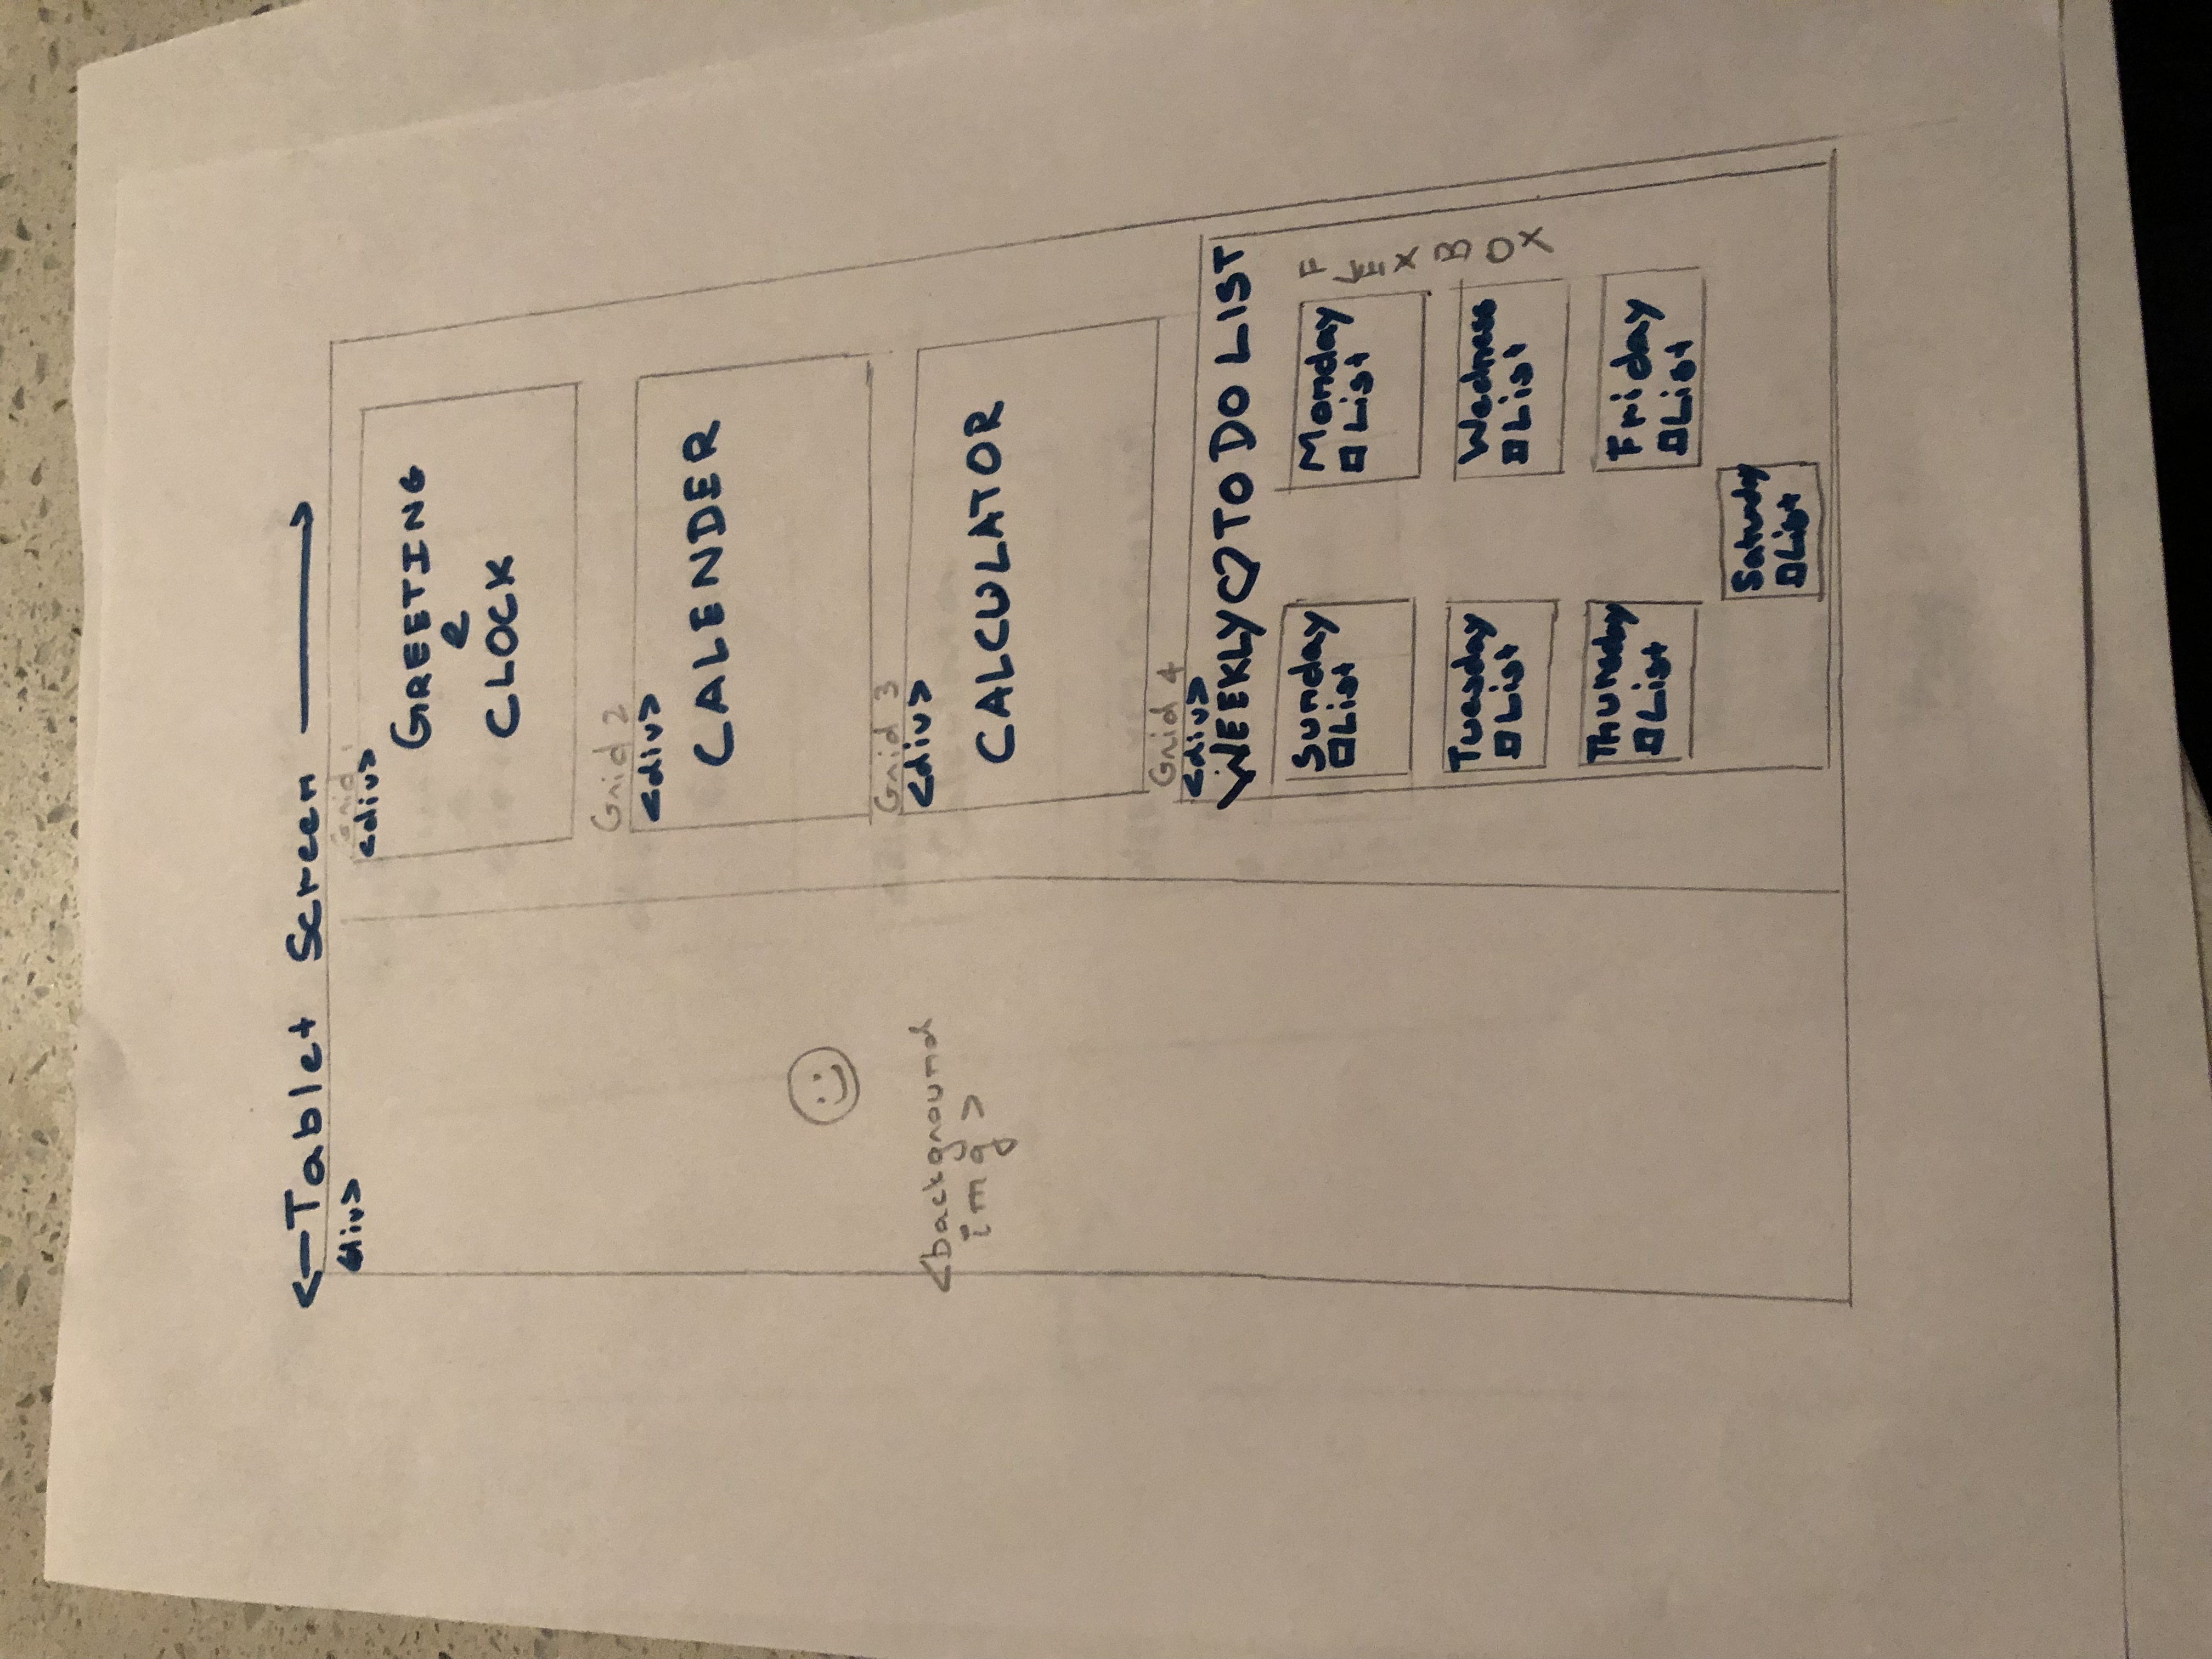 <—Tablet Screen —>
<div>
<background
img>
Grid 1
<div>
GREETING
e
CLOCK
Grid 2
<div>
CALENDER
Grid 3
<div>
CALCULATOR
Grid 4
<div>
WEEKLY♡TO DO LIST
Sunday
□List
Monday
□List
Tuesday
□List
Wedness
□List
Thursday
□List
Friday
□List
Saturday
□List
FLEX BOX